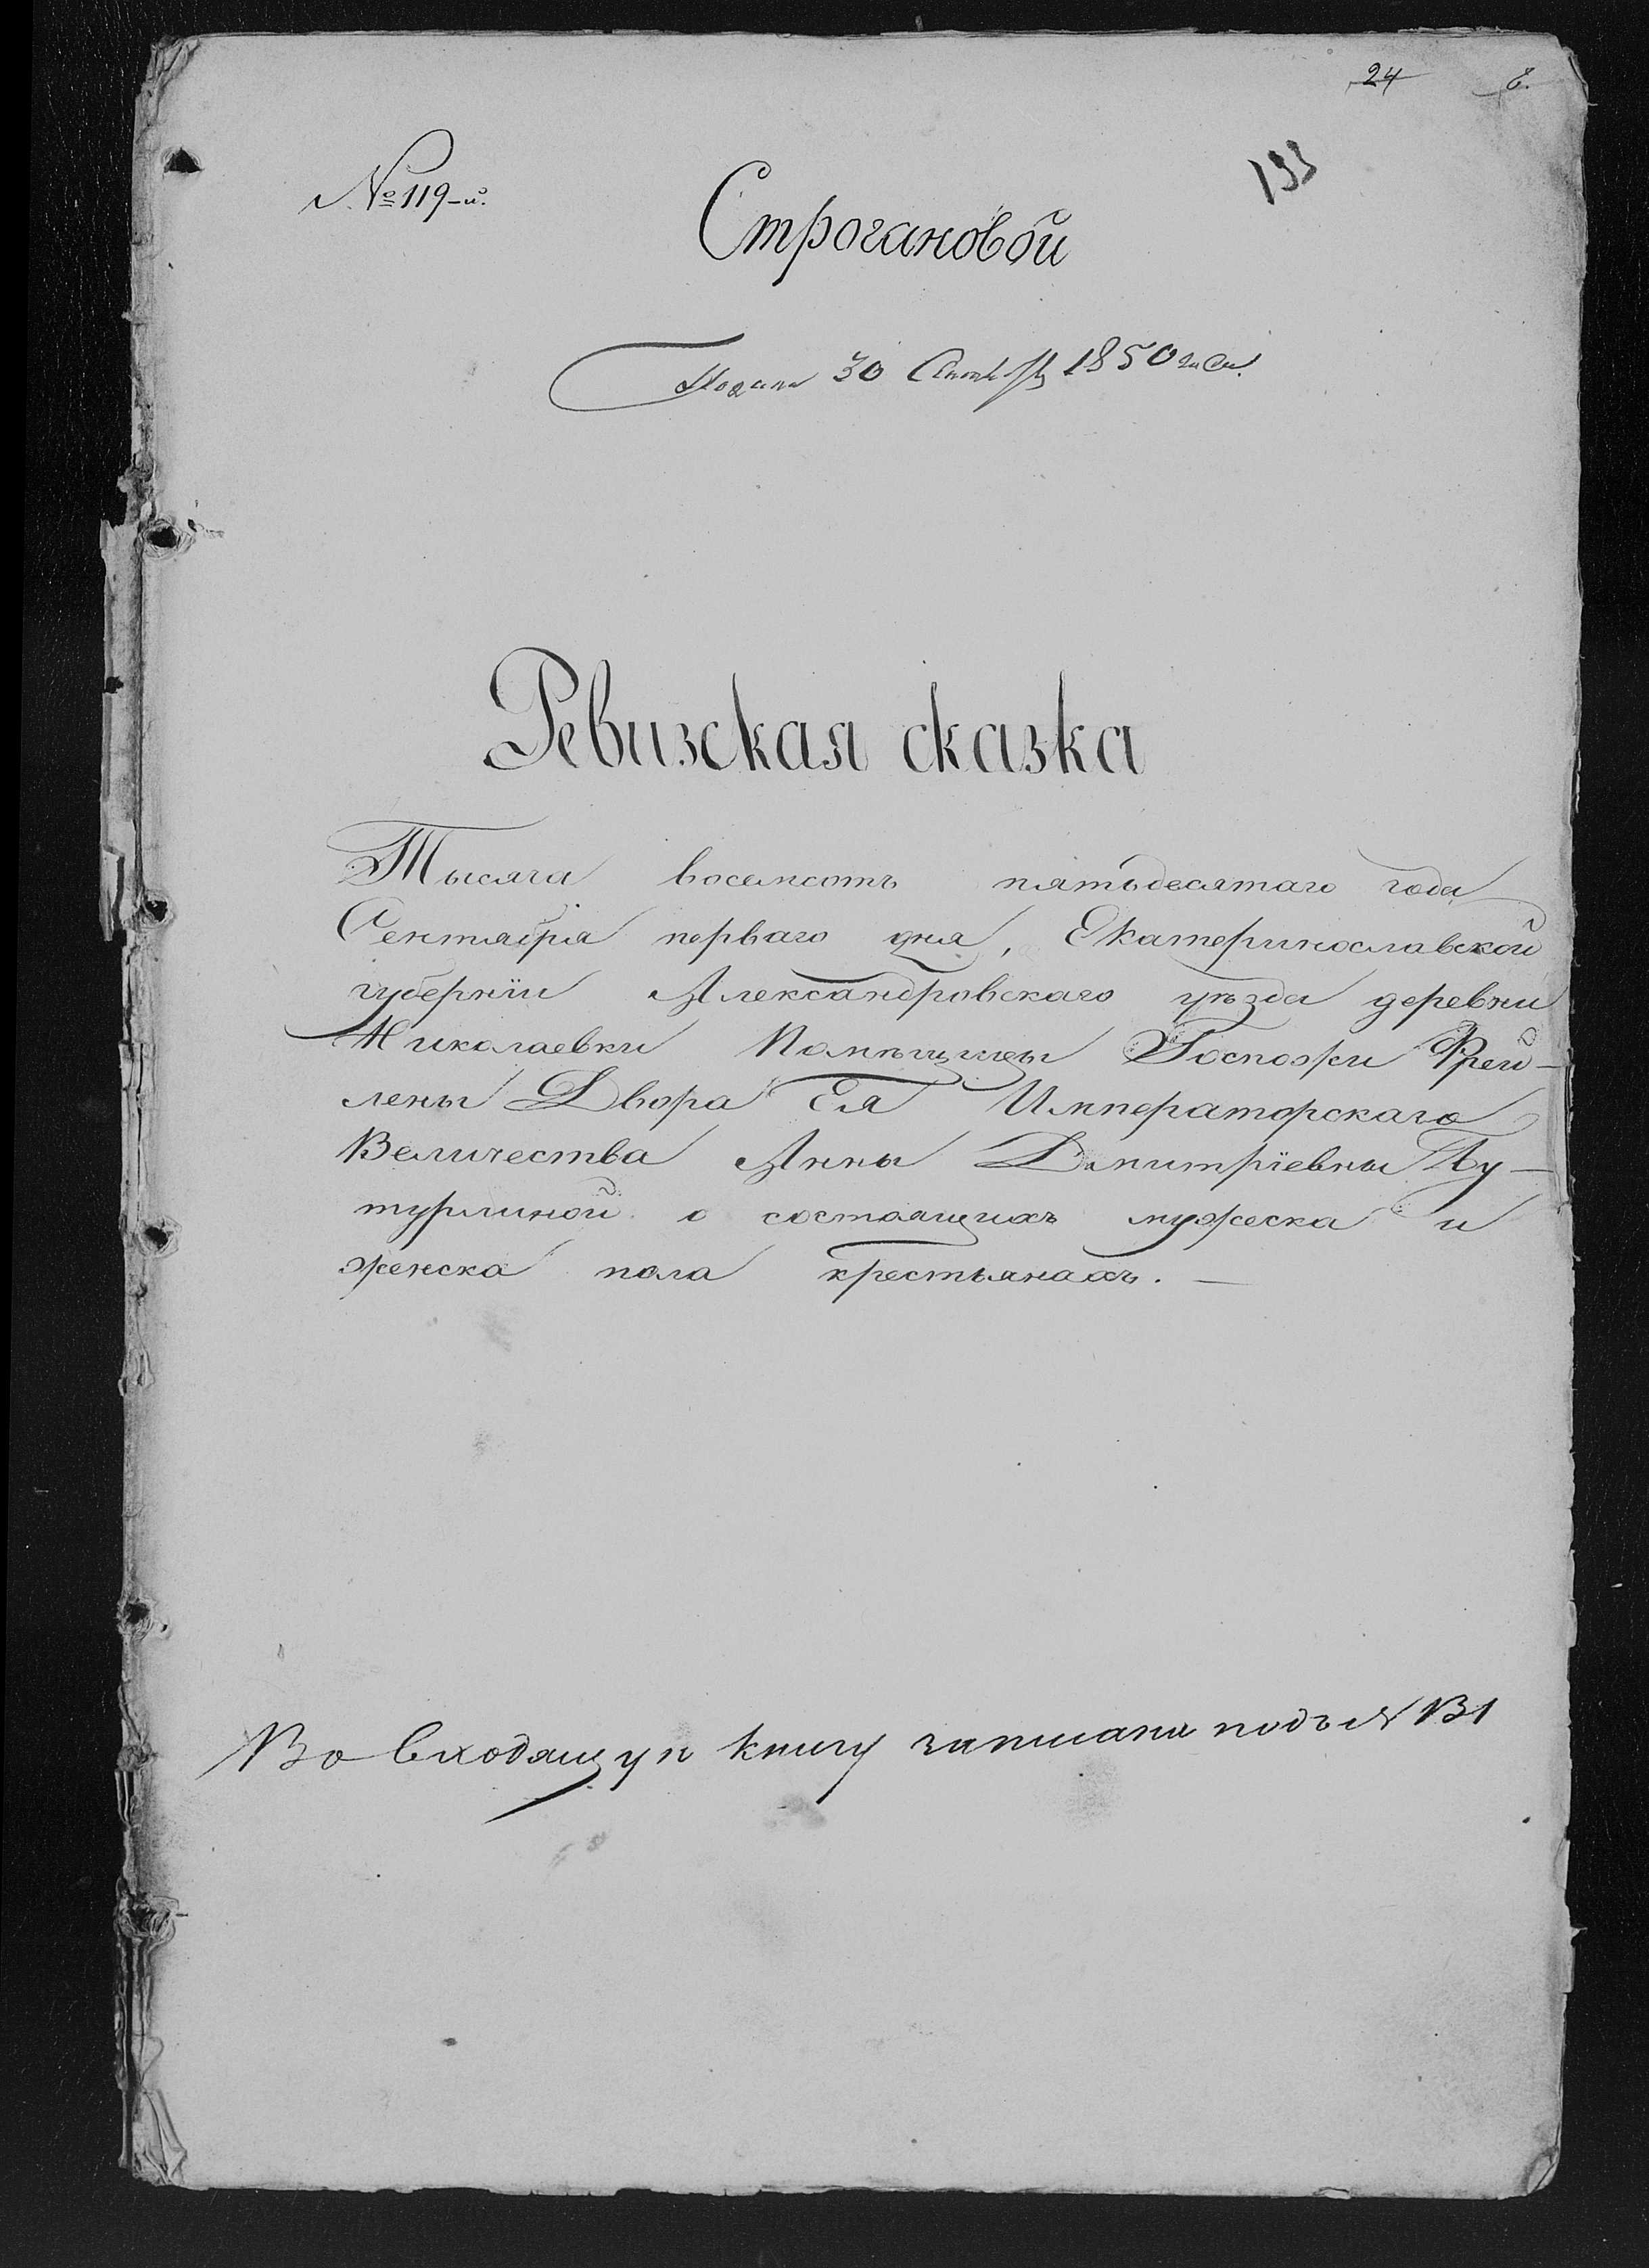 24 8.
№ 119-й.
133
Строгановой
Подана 30 Сентября 1850 года
Ревизская сказка
Тысяча восемсотъ пятьдесятаго года
Сентября перваго дня, Екатеринославской
губерніи Александровскаго уѣзда деревни
Николаевки Помѣщицы Госпожи Фрей-
лены Двора Ея Императорскаго
Величества Анны Дмитріевны Бу-
турлиной о состоящихъ мужеска и
женска пола крестьянахъ. —
Во входящую книгу записана подъ №